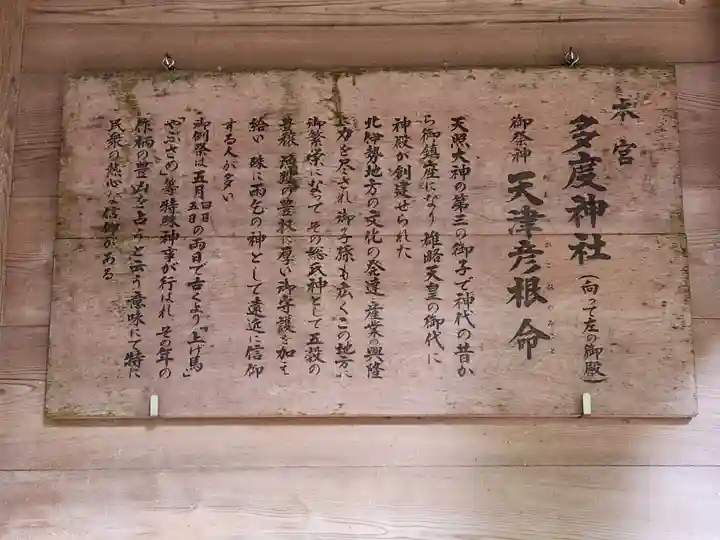 本宮
多度神社(向って左の御殿)
御祭神 天津彦根命
あまつひこねのみこと
天照大神の第三の御子で神代の昔か
ら御鎮座になり 雄略天皇の御代に
神殿が創建せられた
北伊勢地方の文化の発達 産業の興隆
に力を尽され 御子孫も広くこの地方に
御繁栄になって その総氏神として五穀の
豊穣 漁獲の豊牧に厚い御守護を加え
給い 殊に雨乞の神として遠近に信仰
する人が多い
御例祭は五月四日五日の両日で古くより「上げ馬」
「やぶさめ」等特殊神事が行はれ その年の
作柄の豊凶を占うと云う意味にて特に
民衆の熱心な信仰がある